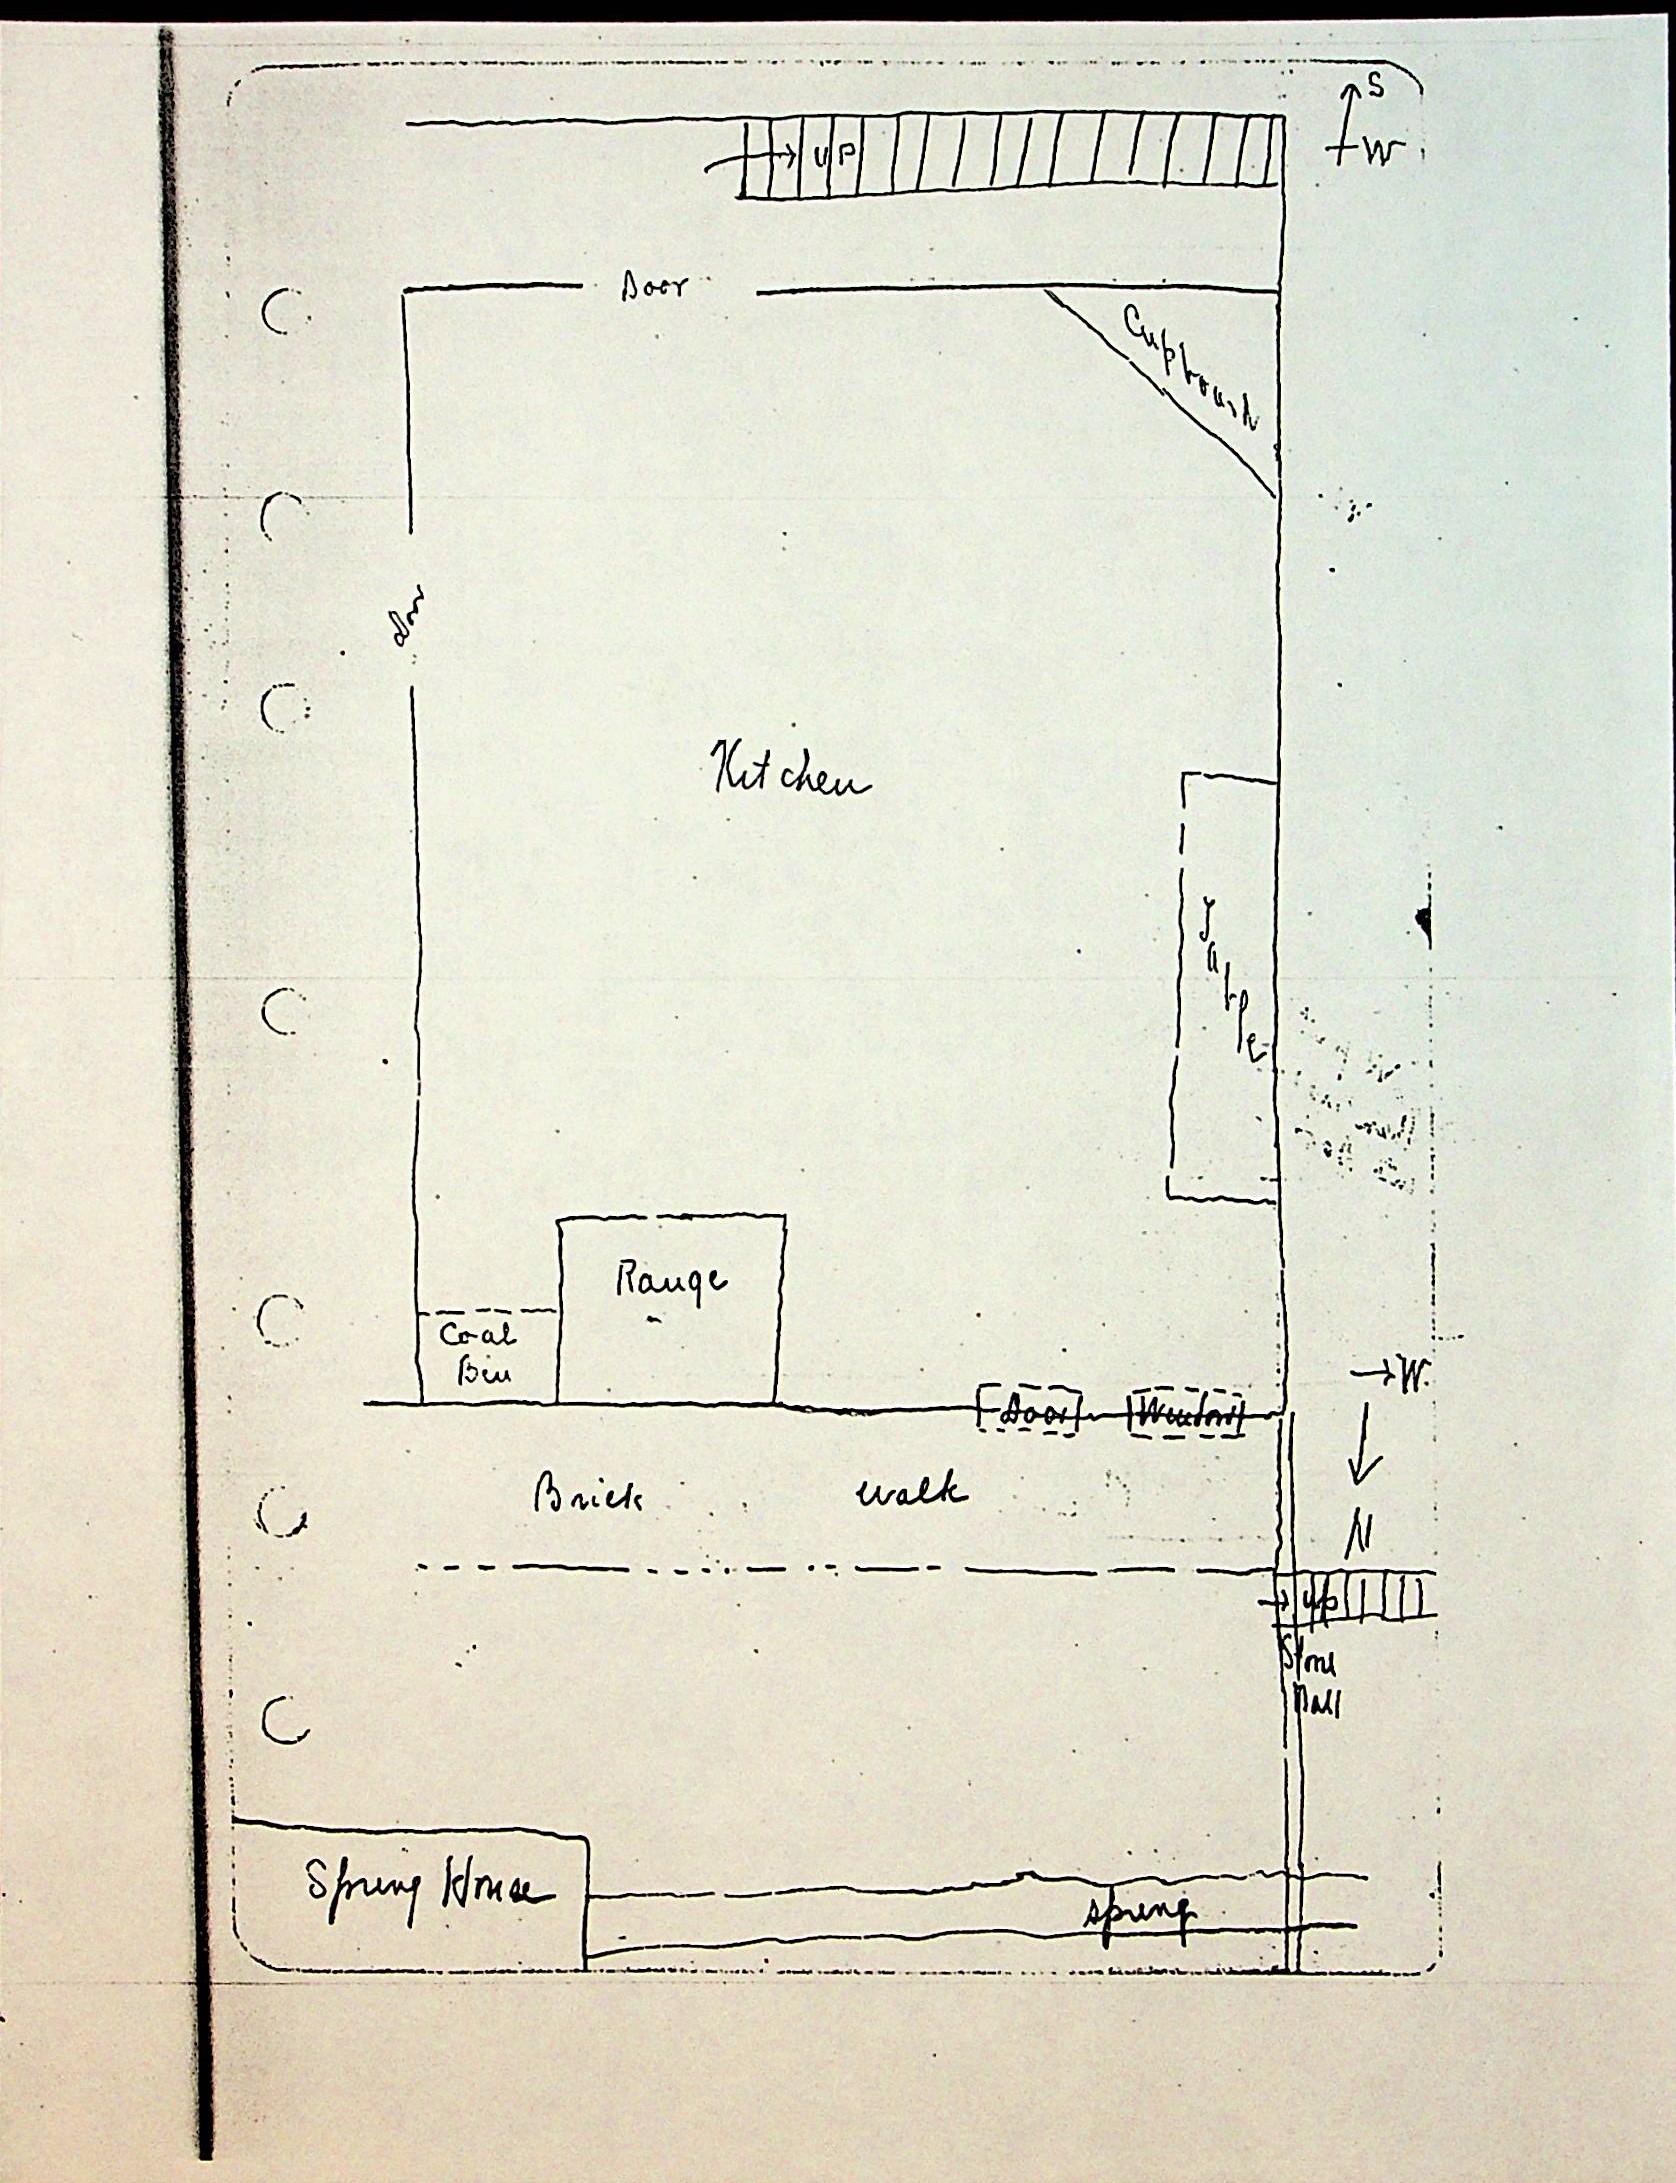 S
W
UP
Door
Cupboard
door
Kitchen
Table
Range
Coal
Bin
W.
Door
Window
Brick walk
N
up
Stone
Wall
Spring House
spring